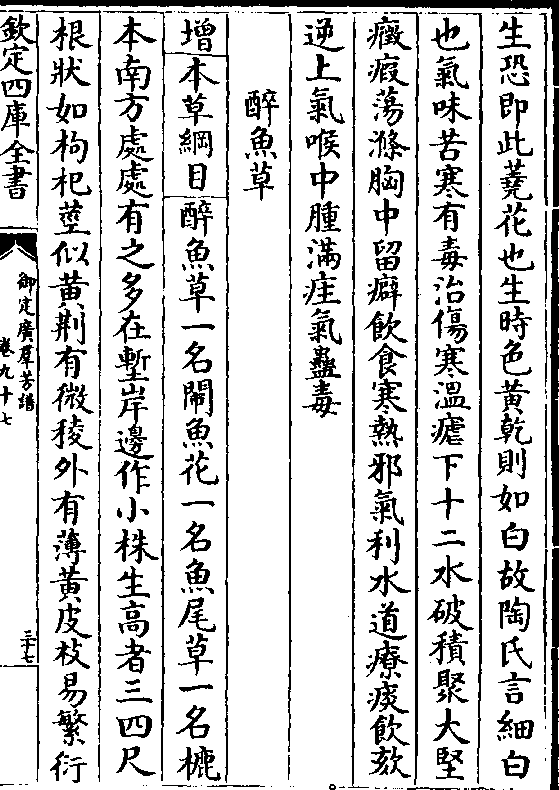 生恐即此蕘花也生時色黄乾則如白故陶氏言細白
也氣味苦寒有毒治傷寒溫瘧下十二水破積聚大堅
癥瘕蕩滌胸中留癖飲食寒熱邪氣利水道療痰飲欬
逆上氣喉中腫滿疰氣蠱毒
醉魚草
增本草綱目醉魚草一名閙魚花一名魚尾草一名樚
本南方處處有之多在塹岸邊作小株生高者三四尺
根狀如枸杞莖似黄荆有微稜外有薄黄皮枝易繁衍
欽定四庫全書
御定廣羣芳譜
卷九十七
三十七